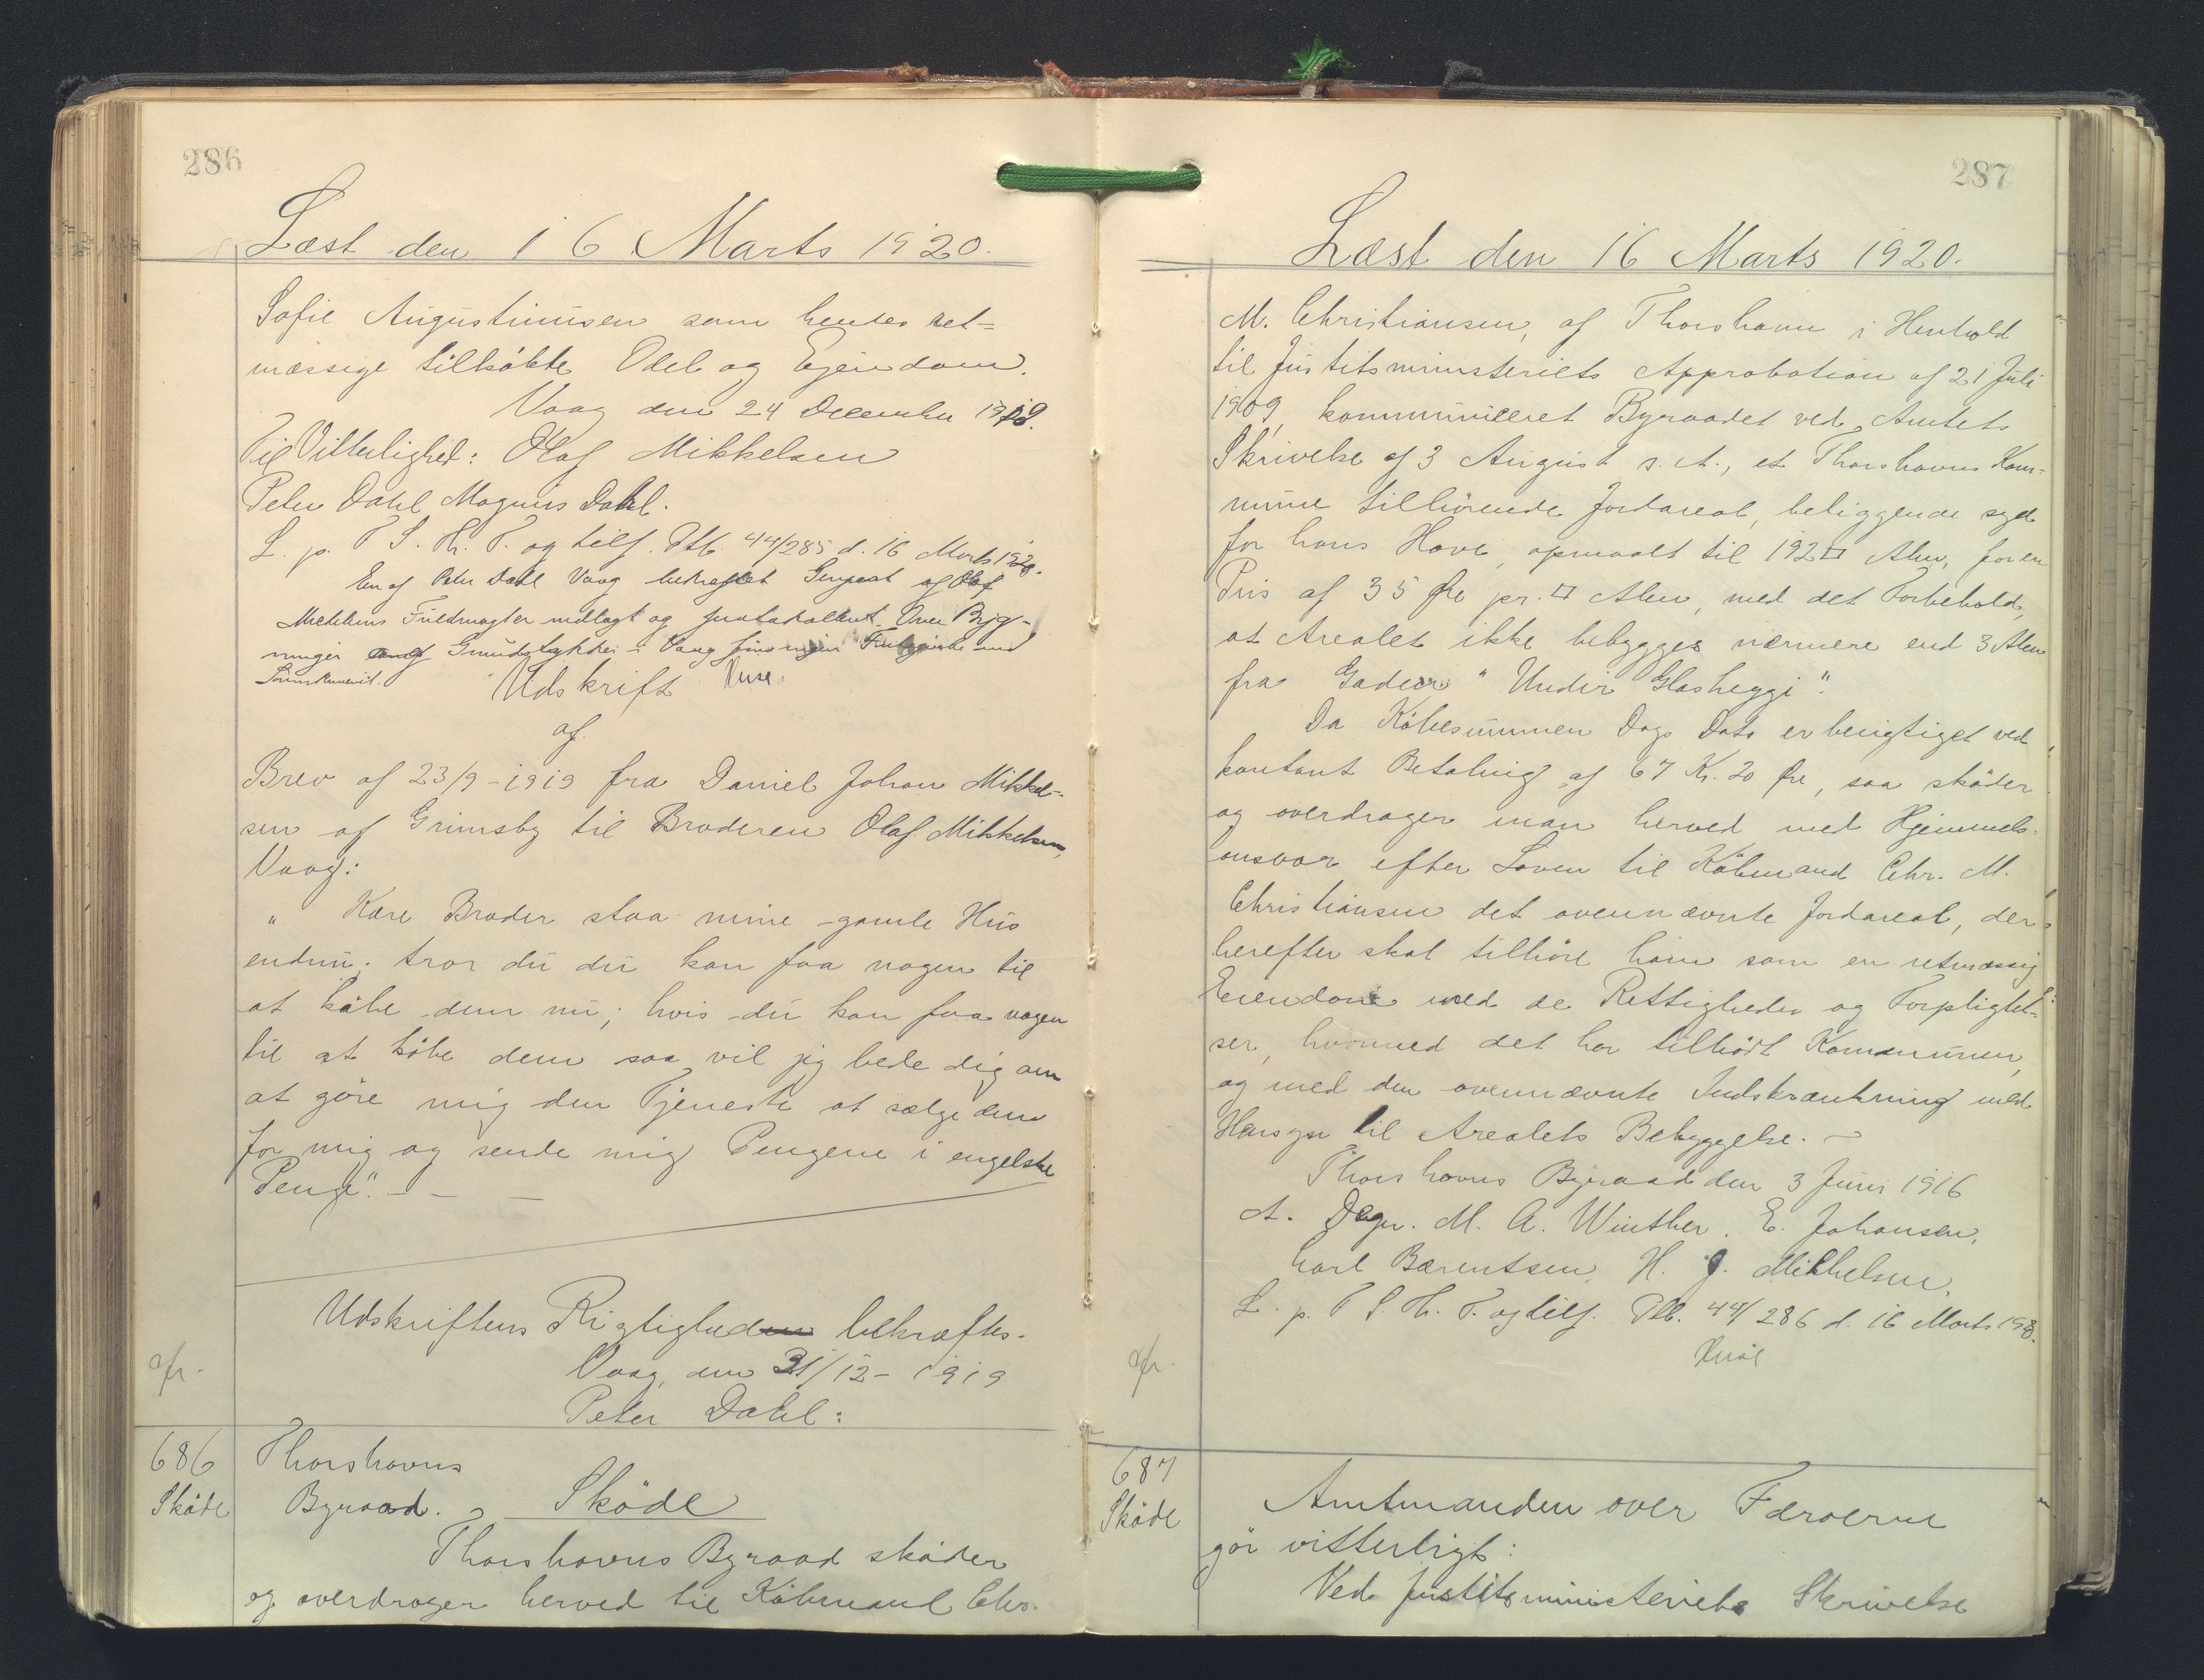 286
Læst den 16 Marts 1920.
Sofie Augustinusen som hendes ret=
mæssige tilköbte Odel og Ejendom.
Vaag den 24 December 1919.
Til Vitterlighed: Olaf Mikkelsen
Peter Dahl Magnus Dahl.
L. p. T S. Th. T. og tilf. Ptb. 44/285 d. 16 Marts 1920.
En af Peter Dahl Vaag bekræftet Genpart af Olaf
Mikkelsens Fuldmagt er nedlagt og protokolleret. Over Byg-
ninger Grundstykker i Vaag findes ingen
Udskrift
af
Brev af 23/9-1919 fra Daniel Johan Mikkel-
sen af Grimsby til Broderen Olaf Mikkelsen,
Vaag:
" Kære Broder staa mine gamle Hus
endnu; tror du du kan faa nogen til
at köbe dem nu; hvis du kan faa nogen
til at köbe dem saa vil jeg bede dig om
at göre mig den Tjeneste at sælge dem
for mig og sende mig Pengene i engelske
Penge". - - -
Udskriftens Rigtighed bekræftes.
Vaag, den 31/12-1919
Peter Dahl:
afr.
686
Sköde
Thorshavns
Byraad.
Sköde
Thorshavns Byraad sköder
og overdrager herved til Köbmand Chr.
287
Læst den 16 Marts 1920.
M. Christiansen, af Thorshavn i Henhold
til Justitsministeriets Approbation af 21 Juli
1909, kommuniceret Byraadet ved Amtets
Skrivelse af 3 August s. A., et Thorshavns Kom=
mune tilhörende Jordareal, beliggende syd
for hans Have, opmaalt til 192 □ Alen, for en
Pris af 35 Øre pr. □ Alen, med det Forbehold,
at Arealet ikke bebygges nærmere end 3 Alen
fra Gaden "Undir Glasheyggi".
Da Köbesummen Dags Dato er berigtiget ved
kontant Betaling af 67 Kr. 20 Øre, saa sköder
og overdrager man herved med Hjemmels=
ansvar efter Loven til Köbmand Chr. M.
Christiansen det ovennævnte Jordareal, der
herefter skal tilhöre ham som en retmæssig
Eiendom med de Rettigheder og Forpligtel=
ser, hvormed det har tilhört Kommunen,
og med den ovennævnte Indskrænkning med
Hensyn til Arealets Bebyggelse. -
Thorshavns Byraad den 3 Juni 1916
A. Degn. M. A. Winther. E. Johansen.
Carl Bærentsen, H. J. Mikkelsen.
L. p. T S. Th. T. og tilf. Ptb. 44/286 d. 16 Marts 1920.
afr.
687
Sköde
Amtmanden over Færøerne
gör vitterligt:
Ved Justitsministeriets Skrivelse